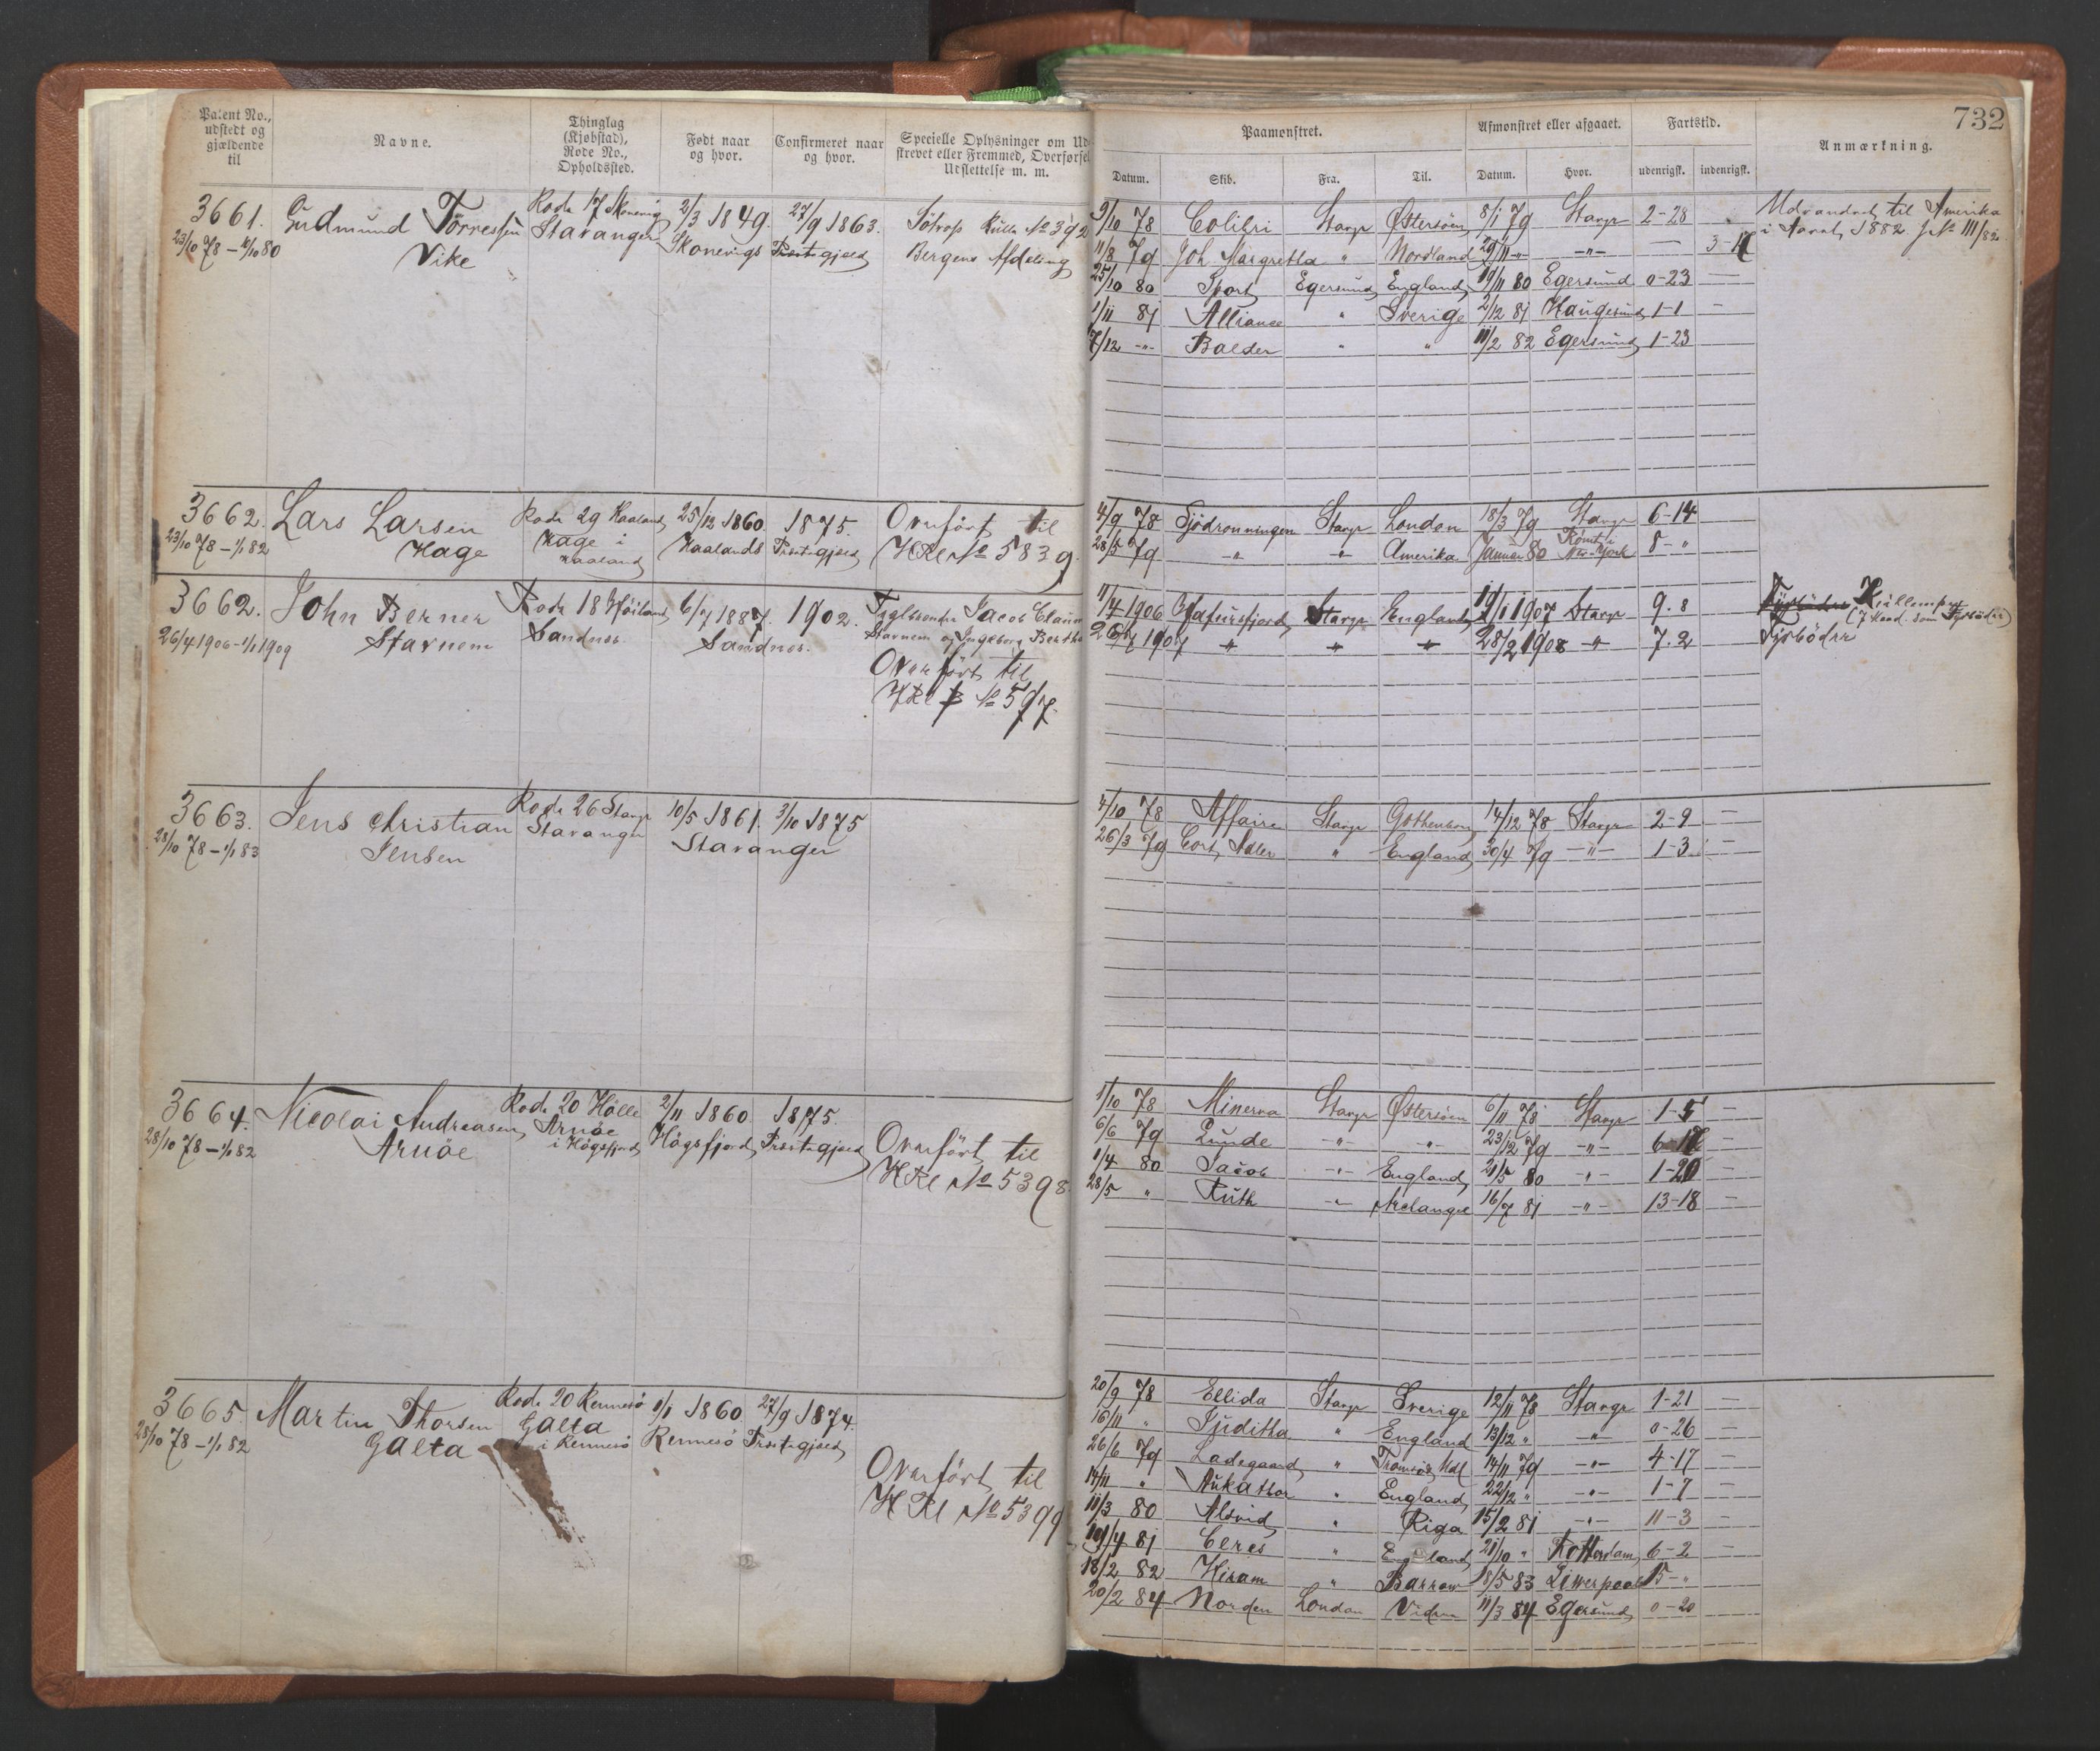 732
Patent No., udstedt og gjældende til
Navne.
Thinglag (Kjøbstad), Rode No., Opholdssted.
Født naar og hvor.
Confirmeret naar og hvor.
Specielle Oplysninger om Ud-
strevet eller Fremmed, Overførsel
Udslettelse m. m.
Paamønstret.
Afmønstret eller afgaaet.
Fartstid.
Anmærkning.
Datum. Skib. Fra. Til. Datum. Hvor. udenrigsk. indenrigsk.
3661. Gudmund Torressen Rode 17 Skonevig 2/3 1849. 27/9 1863. Søtrops Rulle No 392
23/10 78 – 10/10 80 Vike Stavanger Skonevigs Prestegjæld Bergens Afdeling
9/10 78 Colibri Stavgr Østersøen 8/1 79 Stavgr 2-28 Udvandret til Amerika
11/8 79 Joh Margretha " Nordland 29/11 -"- -"- — 3- i Marts 1882 J No 111/82
25/10 80 Sport Egersund England 19/11 80 Egersund 0-23 —
1/11 81 Alliance " Sverige 2/12 81 Haugesund 1-1 —
17/12 -"- Balder " " 11/2 82 Egersund 1-23
3662. Lars Larsen Rode 29 Haaland 25/12 1860. 1875. Overført til
23/10 78 – 1/1 82 Hage Hage i Haaland Haalands Prestegjæld HRl No 5839.
4/9 78 Sjödronningen Stavgr London 18/3 79 Stavgr 6-14
28/5 79 -"- -"- Amerika Januar 80 Römt i New-York 8-"
3662. John Berner Rode 18 Höiland 6/7 1887. 1902. Jacob
26/4 1906 – 1/1 1909 Stavnem Sandnes. Sandnes. Stavnem og Ingeborg Berthe
Overført til
HRl B No 597.
11/4 1906 Hafursfjord Stavgr England 19/1 1907 Stavgr 9.8 Fyrbøder Kullemper
(7 Maad. som Fyrbøder)
26/7 1907 " " " 28/2 1908 -"- 7.2 Fyrbøder
3663. Jens Christian Rode 26 Stavgr 10/5 1861. 3/10 1875
28/10 78 – 1/1 83 Jensen Stavanger Stavanger
4/10 78 Affairen Stavgr Gothenborg 14/12 78 Stavgr 2-9 —
26/3 79 Cort Adler " England 30/4 79 -"- 1-3 —
3664. Nicolai Andreasen Rode 20 Hölle 2/11 1860. 1875.
28/10 78 – 1/1 82 Arnøe Arnøe i Högsfjord Högsfjord Prestegjæld Overført til
HRl No 5398.
1/10 78 Minerva Stavgr Østersøen 6/11 78 Stavgr 1-5 —
6/6 79 Lunde -"- -"- 23/12 79 -"- 6- —
1/4 80 Jacob -"- England 21/5 80 " 1-20 —
28/5 " Ruth -"- Archangel 16/7 81 -"- 13-18 —
3665. Martin Thorsen Rode 20 Rennesö 1/1 1860. 27/9 1874.
28/10 78 – 1/1 82 Galta Galta i Rennesö Rennesö Prestegjæld
Overført til
HRl No 5399
20/9 78 Ellida Stavgr Sverige 12/11 78 Stavgr 1-21 —
16/11 " Juditha " England 13/12 " -"- 0-26 —
26/6 79 Ladegaard " Tromsøe Udl 14/11 79 -"- 4-17 —
14/11 " " England 22/12 " -"- 1-7 —
11/3 80 Alvid " Riga 15/2 81 -"- 11-3 —
19/4 81 Ceres " England 21/10 " Rotterdam 6-2 —
18/2 82 Hiram " Barrow 18/5 83 Liwerpool 15-"
20/2 84 Norden London 11/3 84 Egersund 0-20